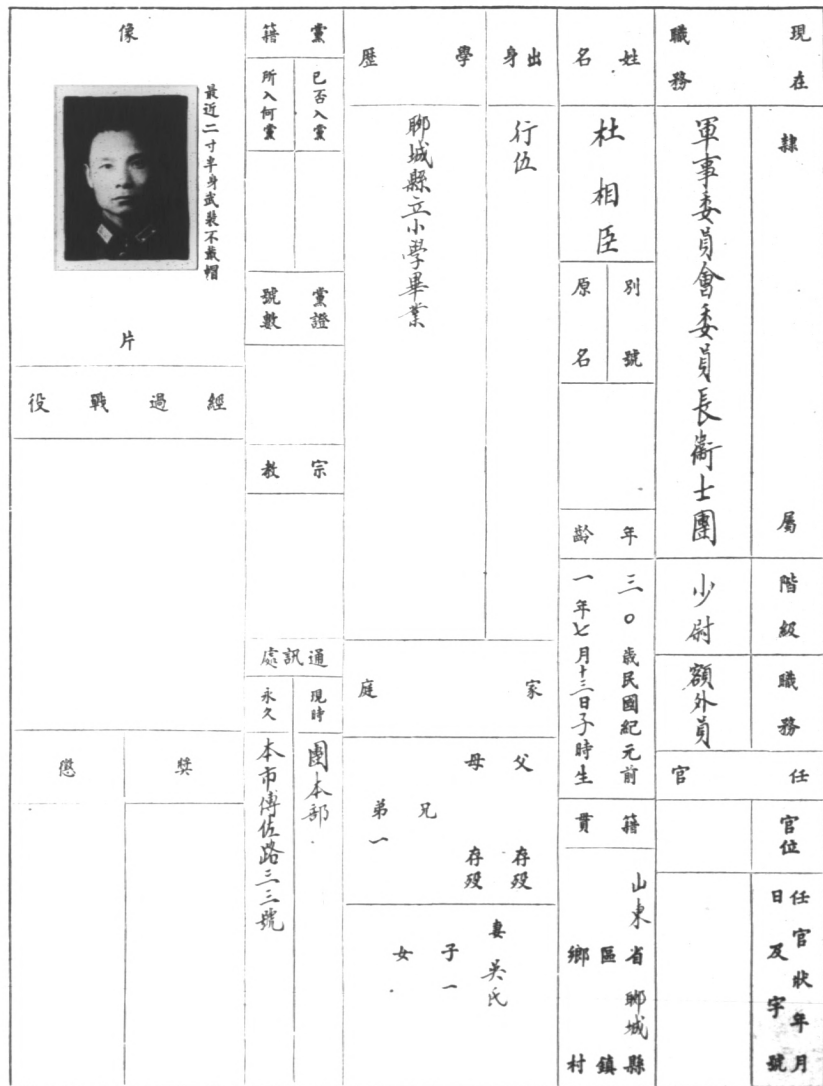 現在職務
隸屬
軍事委員會委員長衛士團
階級
少尉
職務
額外員
任官
官位
任官狀年月日及字號
姓名
杜相臣
別號
原名
年齡
三〇歲民國紀元前
一年七月十三日子時生
籍貫
山東省聊城縣
區鎮
鄉村
出身
行伍
學歷
聊城縣立小學畢業
家庭
父 存歿
母 存歿
兄
弟一
妻 吳氏
子一
女
黨籍
已否入黨
所入何黨
黨證號數
宗教
通訊處
現時
團本部
永久
本市傅佐路三三號
像片
最近二寸半身武裝不戴帽
經過戰役
獎
懲